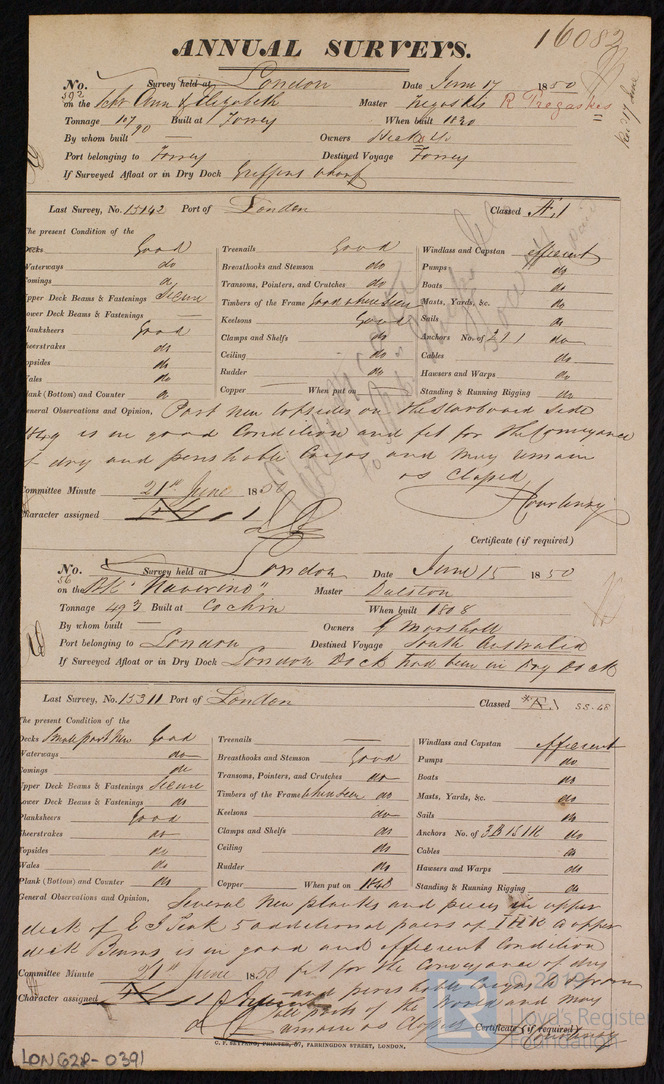 16082
ANNUAL SURVEYS.
No. 592 Survey held at London Date June 17 1850
on the Schr Ann & Elizabeth Master Tregaskis R Tregaskes
Tonnage 107 90 Built at Torrey When built 1820
By whom built Owners Hicks
Port belonging to Torrey Destined Voyage Torrey
If Surveyed Afloat or in Dry Dock Griffins Wharf
Last Survey, No. 15142 Port of London Classed Æ 1
The present Condition of the
Decks Good Treenails Good Windlass and Capstan efficient
Waterways do Breasthooks and Stemson do Pumps do
Comings do Transoms, Pointers, and Crutches do Boats do
Upper Deck Beams & Fastenings Secure Timbers of the Frame Good where seen Masts, Yards, &c. do
Lower Deck Beams & Fastenings — Keelsons Good Sails do
Planksheers Good Clamps and Shelfs do Anchors No. of 211 do
Sheerstrakes do Ceiling do Cables do
Topsides do Rudder do Hawsers and Warps do
Wales do Copper — When put on — Standing & Running Rigging do
Plank (Bottom) and Counter do
General Observations and Opinion, Part new topsides on the Starboard Side
is in good Condition and fit for the Conveyance
of dry and perishable Cargos and may remain
as Classed
Committee Minute 21st June 1850
Character assigned Æ 1
Courtenay
Certificate (if required)
No. 56 Survey held at London Date June 15 1850
on the Bk "Navarino" Master Dalston
Tonnage 493 Built at Cochin When built 1808
By whom built — Owners Marshall
Port belonging to London Destined Voyage South Australia
If Surveyed Afloat or in Dry Dock London Dock had been in Dry Dock
Last Survey, No. 15311 Port of London Classed *Æ 1 55.48
The present Condition of the
Decks Small part New Good Treenails — Windlass and Capstan efficient
Waterways do Breasthooks and Stemson Good Pumps do
Comings do Transoms, Pointers, and Crutches do Boats do
Upper Deck Beams & Fastenings Secure Timbers of the Frame where seen do Masts, Yards, &c. do
Lower Deck Beams & Fastenings do Keelsons do Sails do
Planksheers Good Clamps and Shelfs do Anchors No. of 3B 1S 1K do
Sheerstrakes do Ceiling do Cables do
Topsides do Rudder do Hawsers and Warps do
Wales do Copper When put on 1848 Standing & Running Rigging do
Plank (Bottom) and Counter do
General Observations and Opinion, Several New planks and pieces in upper
deck of E I Teak 5 additional pairs of I K to upper
deck Beams is in good and efficient Condition
Committee Minute 21st June 1850 fit for the Conveyance of dry
and perishable Cargos to & from
Character assigned Æ 1 all parts of the World and may
remain as Classed Certificate (if required)
Courtenay
C. F. SEYFANG, PRINTER, 57, FARRINGDON STREET, LONDON.
LON628-0391
© 2019
LR
Lloyd's Register
Foundation